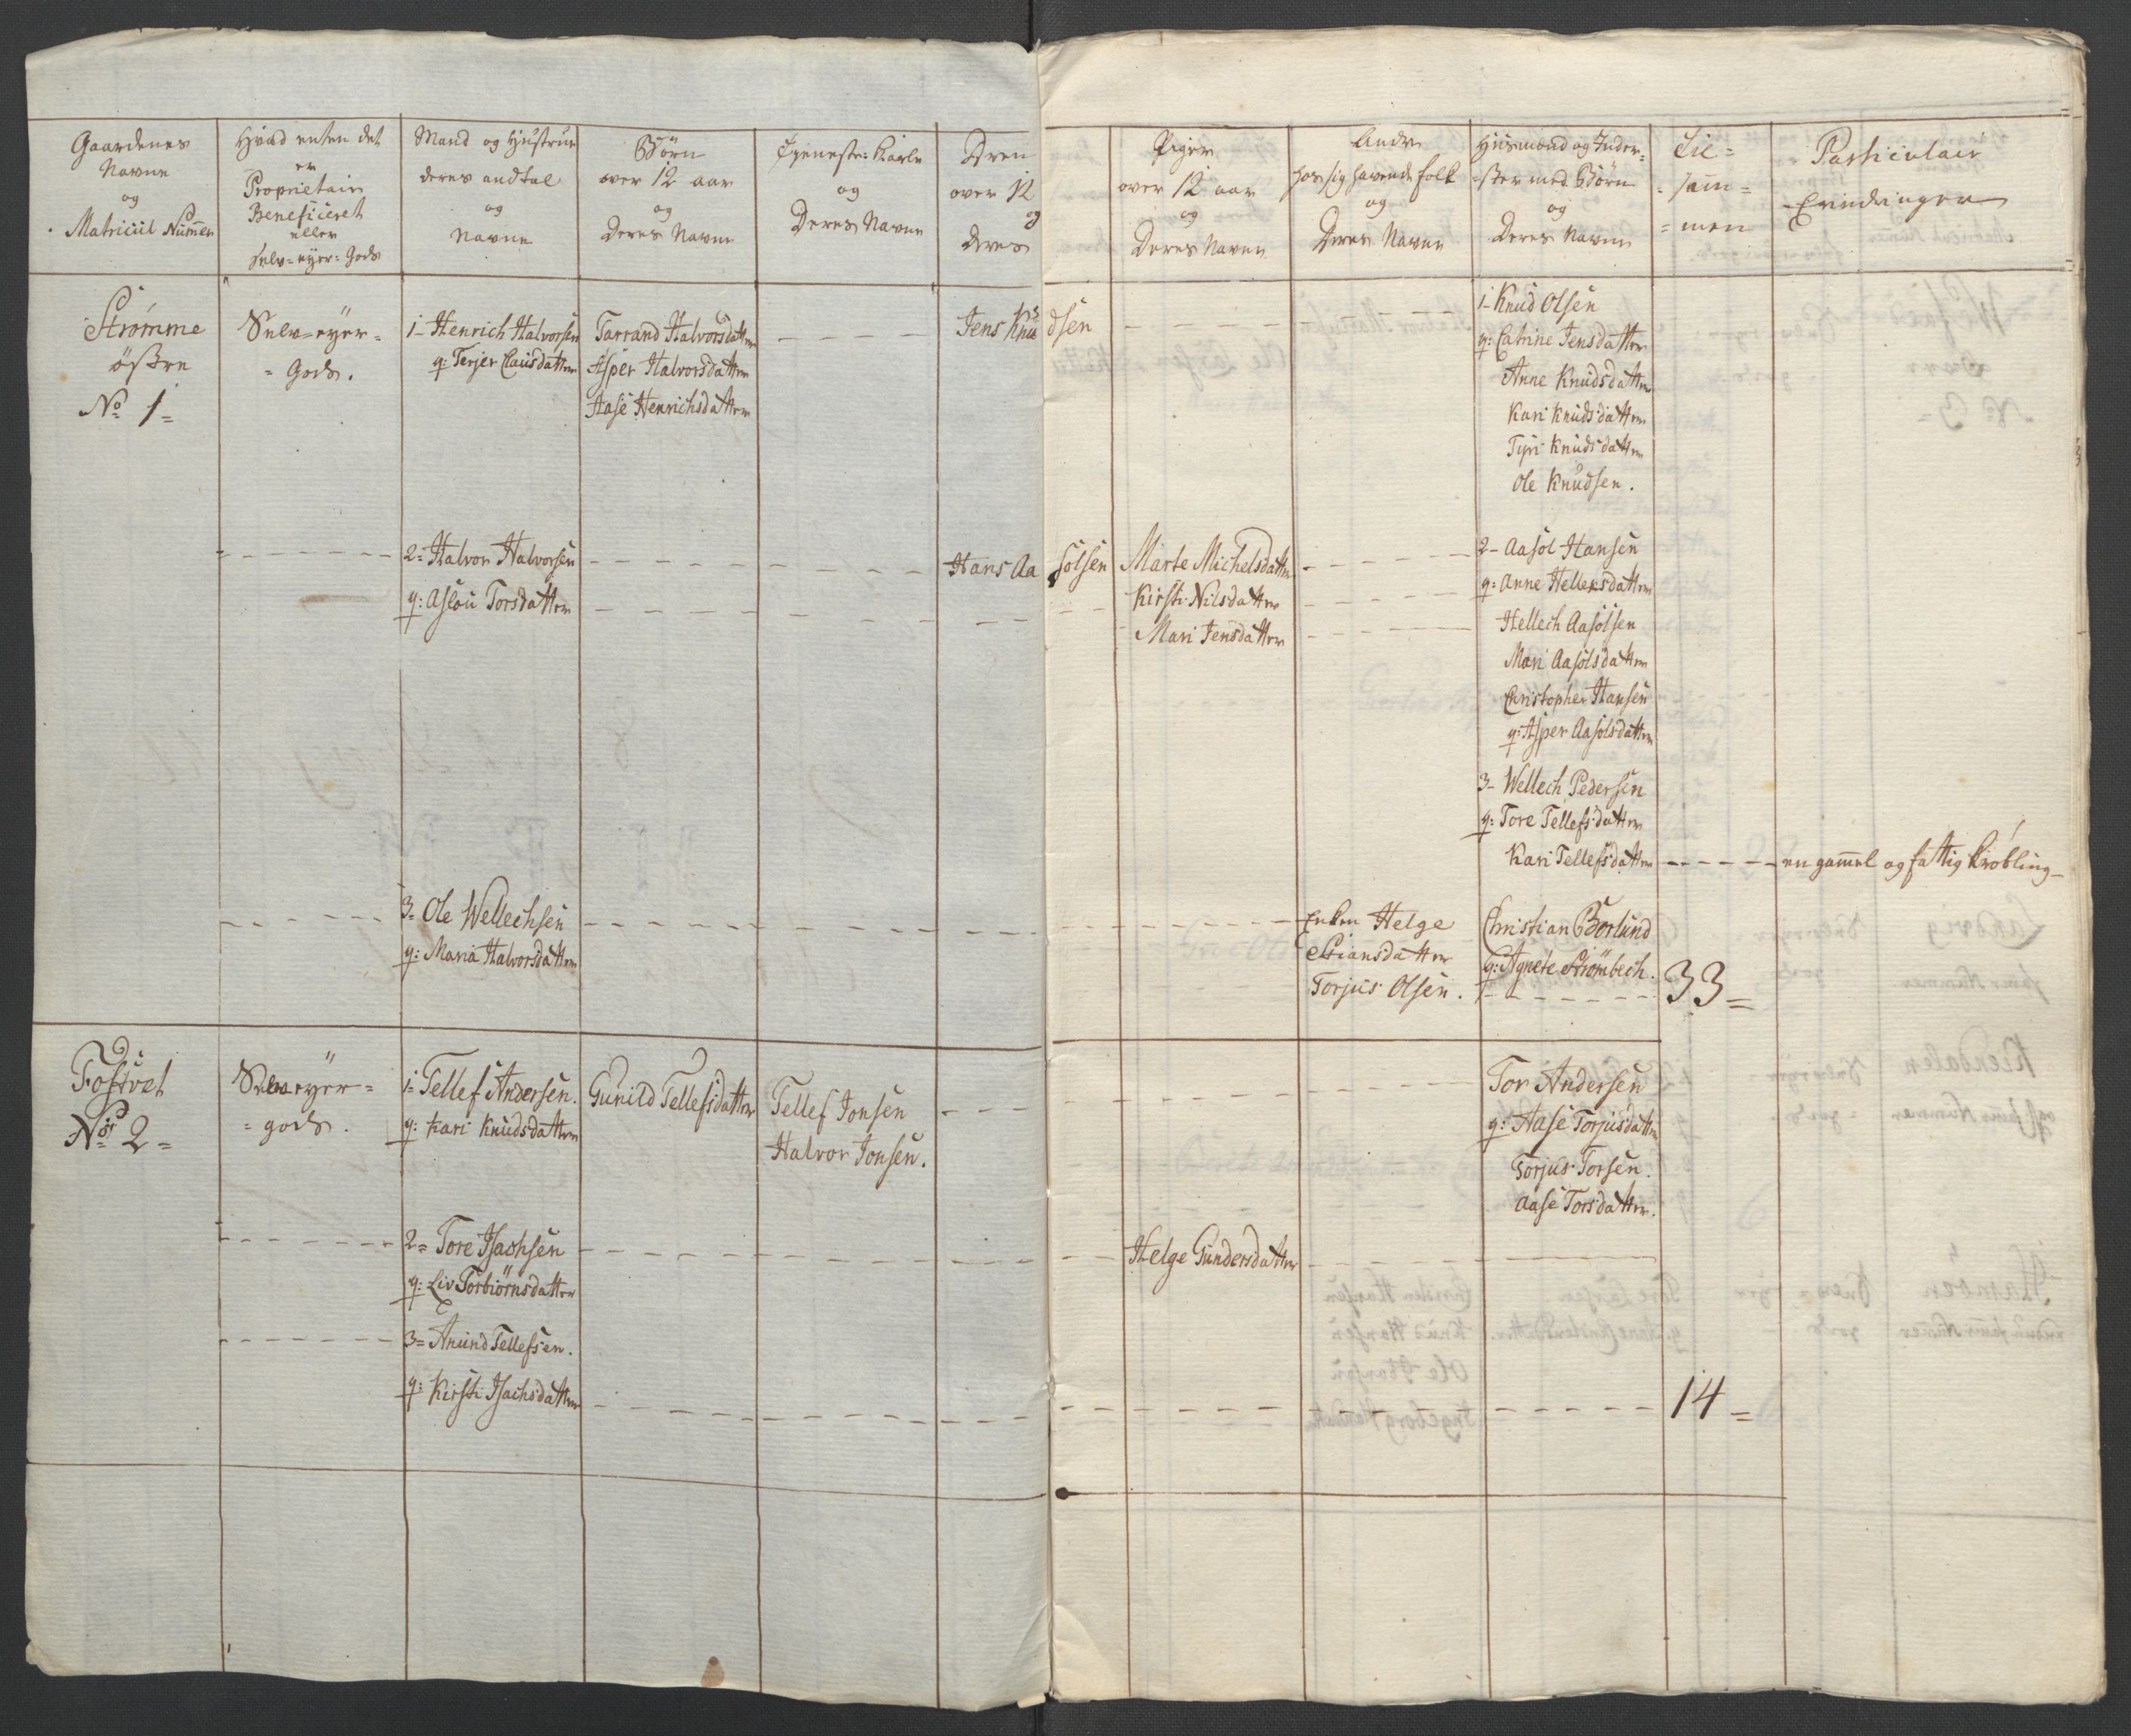 Gaardenes
Navne
og
Matricul Nummer
Hvad enten det
er
Proprietair
Beneficeret
eller
Selv=eyer=Gods
Mand og Hustrue
deres andtal
og
Navne
Börn
over 12 aar
og
Deres Navne
Tjeneste: Karle
og
Deres Navne
Dren
over 12
og
Deres
Piger
over 12 aar
og
Deres Navne
Andre
hos sig havende folk
og
Deres Navne
Huusmænd og Inder=
=ster med Börn
og
Deres Navne
Til=
=sam=
=men
Particulair
Erindringer
Strömme
östre
No 1=
Selv=eyer=
=Gods.
1- Henrich Halvorsen
q: Terjer Clausdatter
Tarrand Halvorsdatter
Asper Halvorsdatter
Aase Henrichsdatter
Jens Knudsen
1- Knud Olsen
q: Catrine Jensdatter
Anne Knudsdatter
Kari Knudsdatter
Tyri Knudsdatter
Ole Knudsen.
2= Halvor Halvorsen
q: Aslou Torsdatter
Hans Aasolsen
Marte Michelsdatter
Kirsti Nilsdatter
Mari Jensdatter
2- Aasol Hansen
q: Anne Hellersdatter
Hellech Aasolsen
Mari Aasolsdatter
Christopher Hansen
q: Asper Aasolsdatter
3- Wellech Pedersen
q: Tore Tellefsdatter
Kari Tellefsdatter - - - - - en gammel og fattig Kröbling
3= Ole Wellechsen
q: Maria Halvorsdatter
Enken Helge
Stiansdatter
Torjus Olsen.
Christian Borlund
q: Agnete Strömbech.
33=
Fosvet
No 2=
Selveyer=
=gods.
1= Tellef Andersen.
q: Kari Knudsdatter
Gunild Tellefsdatter
Tellef Jonsen
Halvor Jonsen.
Tor Andersen
q: Aase Torjusdatter
Torjus Torsen.
Aase Torsdatter.
2= Tore Isachsen
q: Liv Torbiörnsdatter
Helge Gundersdatter
3= Anund Tellefsen.
q: Kirsti Isachsdatter
14=